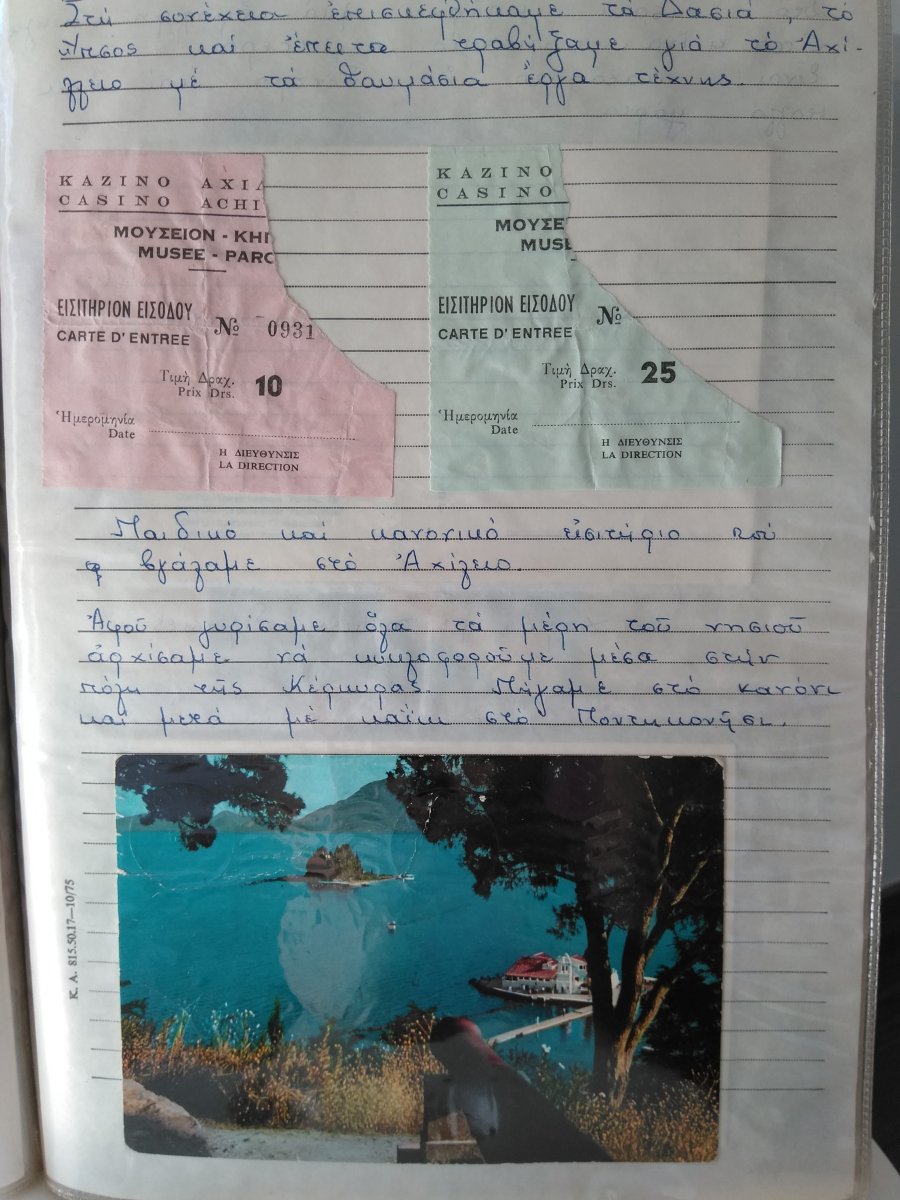 Στή συνέχεια ἐπισκεφθήκαμε τά Δασιά, τό
Ἴπσος καί ἔπειτα τραβήξαμε γιά τό Ἀχί-
λλειο μέ τά θαυμάσια ἔργα τέχνης.
ΚΑΖΙΝΟ ΑΧΙΛ
CASINO ACHI
ΜΟΥΣΕΙΟΝ - ΚΗΠ
MUSEE - PARC
ΕΙΣΙΤΗΡΙΟΝ ΕΙΣΟΔΟΥ
CARTE D' ENTREE
№ 0931
Τιμὴ Δραχ. 10
Prix Drs.
Ἡμερομηνία
Date
Η ΔΙΕΥΘΥΝΣΙΣ
LA DIRECTION
ΚΑΖΙΝΟ
CASINO
ΜΟΥΣΕ
MUSE
ΕΙΣΙΤΗΡΙΟΝ ΕΙΣΟΔΟΥ
CARTE D' ENTREE
№
Τιμὴ Δραχ. 25
Prix Drs.
Ἡμερομηνία
Date
Η ΔΙΕΥΘΥΝΣΙΣ
LA DIRECTION
Παιδικό καί κανονικό εἰσιτήριο πού
βγάλαμε στό Ἀχίλειο.
Ἀφοῦ γυρίσαμε ὅλα τά μέρη τοῦ νησιοῦ
ἀρχίσαμε νά κυκλοφοροῦμε μέσα στήν
πόλη τῆς Κέρκυρας. Πήγαμε στό κανόνι
καί μετά μέ καΐκι στό Ποντηκονήσι.
Κ. Α. 815.50.17—10/75